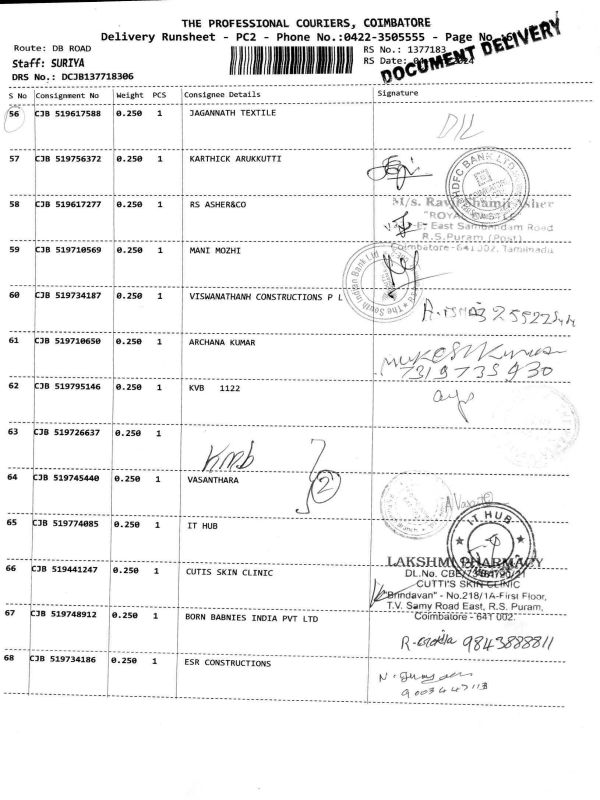 THE PROFESSIONAL COURIERS, COIMBATORE
Delivery Runsheet - PC2 - Phone No.:0422-3505555 - Page No.:6
DOCUMENT DELIVERY
Route: DB ROAD
RS No.: 1377183
Staff: SURIYA
RS Date:
DRS No.: DCJB137718306
S No Consignment No Weight PCS Consignee Details Signature
56 CJB 519617588 0.250 1 JAGANNATH TEXTILE
57 CJB 519756372 0.250 1 KARTHICK ARUKKUTTI
HDFC BANK LTD
58 CJB 519617277 0.250 1 RS ASHER&CO
M/s. Asher
East Sambandam Road
R.S.Puram (Post)
Coimbatore-641 002, Tamilnadu
59 CJB 519710569 0.250 1 MANI MOZHI
The South Indian Bank Ltd
60 CJB 519734187 0.250 1 VISWANATHANH CONSTRUCTIONS P L
61 CJB 519710650 0.250 1 ARCHANA KUMAR
Mukesh Kumar
7319735930
62 CJB 519795146 0.250 1 KVB 1122
63 CJB 519726637 0.250 1
KMB
64 CJB 519745440 0.250 1 VASANTHARA
2
65 CJB 519774085 0.250 1 IT HUB
IT HUB
66 CJB 519441247 0.250 1 CUTIS SKIN CLINIC
LAKSHMI PHARMACY
DL.No.
CUTTI'S SKIN CLINIC
"Brindavan" - No.218/1A-First Floor,
T.V. Samy Road East, R.S. Puram,
Coimbatore - 641 002.
67 CJB 519748912 0.250 1 BORN BABNIES INDIA PVT LTD
9843888811
68 CJB 519734186 0.250 1 ESR CONSTRUCTIONS